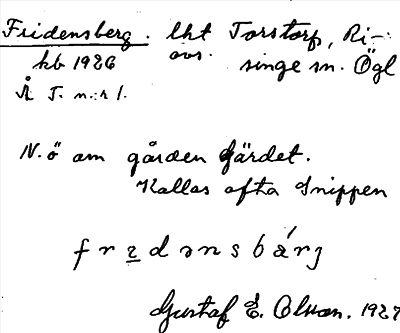 Fridensberg. lht Torstorp, Ri-
kb 1926 avs. singe sn. Ögl
Å T. n:r 1.
N.ö om gården Gärdet.
Kallas ofta Snippen
fredənsbárj
Gustaf E. Olson. 1927